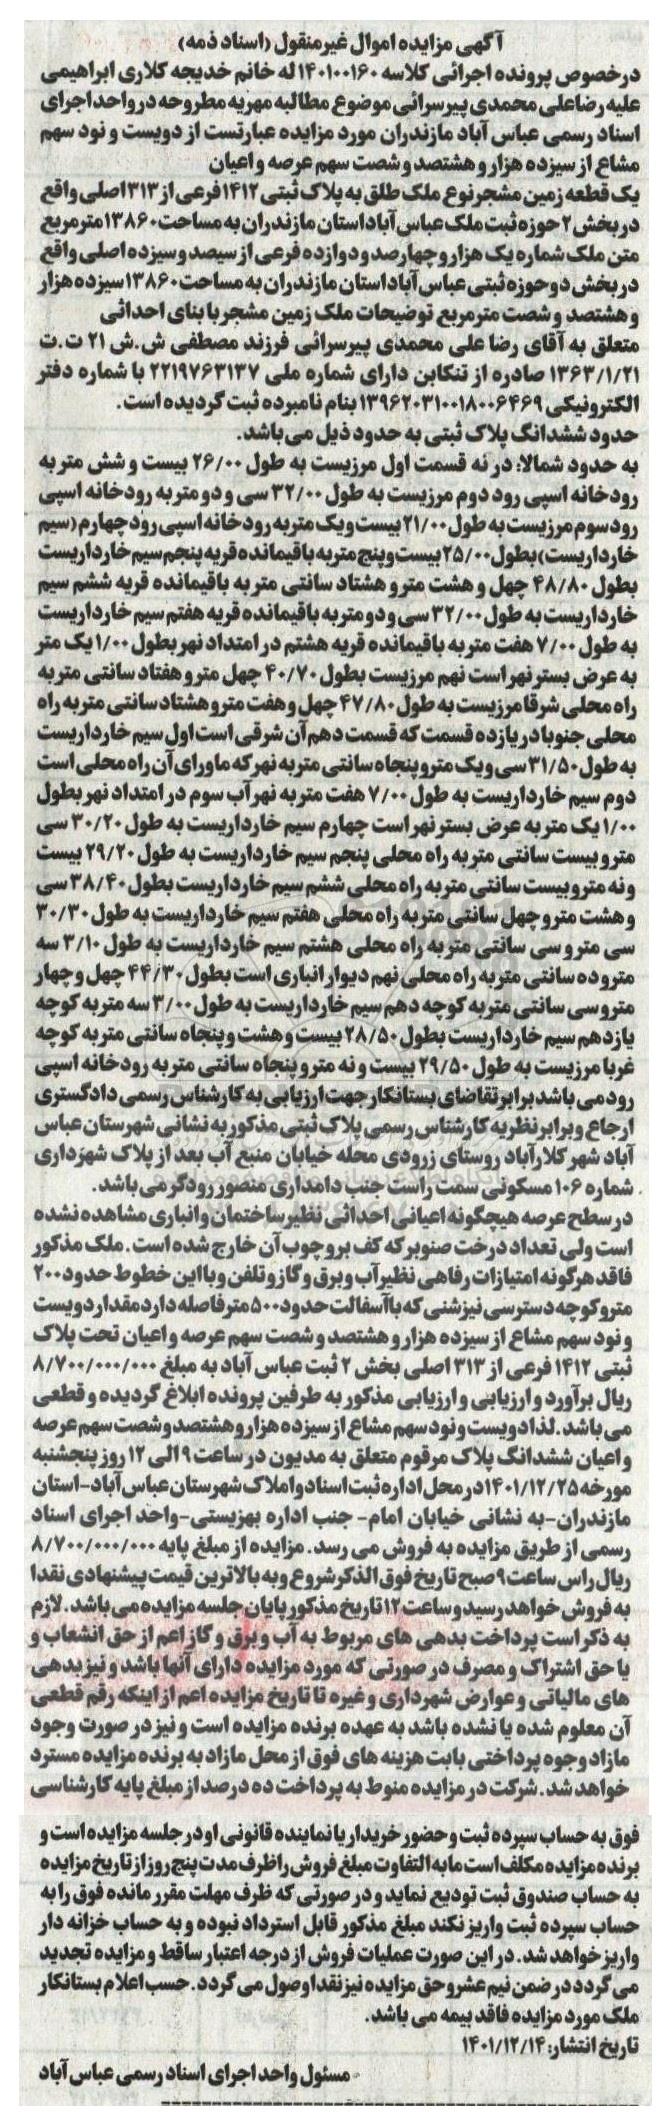 آگهی مزایده اموال غیرمنقول (اسناد ذمه)
درخصوص پرونده اجرائی کلاسه ۱۴۰۱۰۰۱۶۰ له خانم خدیجه کلاری ابراهیمی
علیه رضاعلی محمدی پیرسرائی موضوع مطالبه مهریه مطروحه درواحد اجرای
اسناد رسمی عباس آباد مازندران مورد مزایده عبارتست از دویست و نود سهم
مشاع از سیزده هزار و هشتصد و شصت سهم عرصه و اعیان
یک قطعه زمین مشجر نوع ملک طلق به پلاک ثبتی ۱۴۱۲ فرعی از ۳۱۳ اصلی واقع
در بخش ۲ حوزه ثبت ملک عباس آباد استان مازندران به مساحت ۱۳۸۶۰ مترمربع
متن ملک شماره یک هزار و چهارصد و دوازده فرعی از سیصد و سیزده اصلی واقع
در بخش دو حوزه ثبتی عباس آباد استان مازندران به مساحت ۱۳۸۶۰ سیزده هزار
و هشتصد و شصت مترمربع توضیحات ملک زمین مشجر با بنای احداثی
متعلق به آقای رضا علی محمدی پیرسرائی فرزند مصطفی ش.ش ۲۱ ت.ت
۱۳۶۳/۱/۲۱ صادره از تنکابن دارای شماره ملی ۲۲۱۹۷۶۳۱۳۷ با شماره دفتر
الکترونیکی ۱۳۹۶۲۰۳۱۰۰۱۸۰۰۶۴۶۹ بنام نامبرده ثبت گردیده است.
حدود ششدانگ پلاک ثبتی به حدود ذیل می باشد.
به حدود شمالا: در نه قسمت اول مرزیست به طول ۲۶/۰۰ بیست و شش متر به
رودخانه اسپی رود دوم مرزیست به طول ۳۲/۰۰ سی و دو متر به رودخانه اسپی
رود سوم مرزیست به طول ۲۱/۰۰ بیست و یک متر به رودخانه اسپی رود چهارم (سیم
خارداریست) بطول ۲۵/۰۰ بیست و پنج متر به باقیمانده قریه پنجم سیم خارداریست
بطول ۴۸/۸۰ چهل و هشت متر و هشتاد سانتی متر به باقیمانده قریه ششم سیم
خارداریست به طول ۳۲/۰۰ سی و دو متر به باقیمانده قریه هفتم سیم خارداریست
به طول ۷/۰۰ هفت متر به باقیمانده قریه هشتم در امتداد نهر بطول ۱/۰۰ یک متر
به عرض بستر نهر است نهم مرزیست بطول ۴۰/۷۰ چهل متر و هفتاد سانتی متر به
راه محلی شرقا مرزیست به طول ۴۷/۸۰ چهل و هفت متر و هشتاد سانتی متر به راه
محلی جنوبا در یازده قسمت که قسمت دهم آن شرقی است اول سیم خارداریست
به طول ۳۱/۵۰ سی و یک متر و پنجاه سانتی متر به نهر که ماورای آن راه محلی است
دوم سیم خارداریست به طول ۷/۰۰ هفت متر به نهر آب سوم در امتداد نهر بطول
۱/۰۰ یک متر به عرض بستر نهر است چهارم سیم خارداریست به طول ۳۰/۲۰ سی
متر و بیست سانتی متر به راه محلی پنجم سیم خارداریست به طول ۲۹/۲۰ بیست
و نه متر و بیست سانتی متر به راه محلی ششم سیم خارداریست بطول ۳۸/۴۰ سی
و هشت متر و چهل سانتی متر به راه محلی هفتم سیم خارداریست به طول ۳۰/۳۰
سی متر و سی سانتی متر به راه محلی هشتم سیم خارداریست به طول ۳/۱۰ سه
متر و ده سانتی متر به راه محلی نهم دیوار انباری است بطول ۴۴/۳۰ چهل و چهار
متر و سی سانتی متر به کوچه دهم سیم خارداریست به طول ۳/۰۰ سه متر به کوچه
یازدهم سیم خارداریست بطول ۲۸/۵۰ بیست و هشت و پنجاه سانتی متر به کوچه
غربا مرزیست به طول ۲۹/۵۰ بیست و نه متر و پنجاه سانتی متر به رودخانه اسپی
رود می باشد برابر تقاضای بستانکار جهت ارزیابی به کارشناس رسمی دادگستری
ارجاع و برابر نظریه کارشناس رسمی پلاک ثبتی مذکور به نشانی شهرستان عباس
آباد شهر کلارآباد روستای زرودی محله خیابان منبع آب بعد از پلاک شهرداری
شماره ۱۰۶ مسکونی سمت راست جنب دامداری منصور رودگر می باشد.
در سطح عرصه هیچگونه اعیانی احداثی نظیر ساختمان و انباری مشاهده نشده
است ولی تعداد درخت صنوبر که کف بر و چوب آن خارج شده است. ملک مذکور
فاقد هرگونه امتیازات رفاهی نظیر آب و برق و گاز و تلفن و با این خطوط حدود ۲۰۰
متر و کوچه دسترسی نیز شنی که با آسفالت حدود ۵۰۰ متر فاصله دارد مقدار دویست
و نود سهم مشاع از سیزده هزار و هشتصد و شصت سهم عرصه و اعیان تحت پلاک
ثبتی ۱۴۱۲ فرعی از ۳۱۳ اصلی بخش ۲ ثبت عباس آباد به مبلغ ۸/۷۰۰/۰۰۰/۰۰۰
ریال برآورد و ارزیابی و ارزیابی مذکور به طرفین پرونده ابلاغ گردیده و قطعی
می باشد. لذا دویست و نود سهم مشاع از سیزده هزار و هشتصد و شصت سهم عرصه
و اعیان ششدانگ پلاک مرقوم متعلق به مدیون در ساعت ۹ الی ۱۲ روز پنجشنبه
مورخه ۱۴۰۱/۱۲/۲۵ در محل اداره ثبت اسناد و املاک شهرستان عباس آباد-استان
مازندران-به نشانی خیابان امام- جنب اداره بهزیستی-واحد اجرای اسناد
رسمی از طریق مزایده به فروش می رسد. مزایده از مبلغ پایه ۸/۷۰۰/۰۰۰/۰۰۰
ریال راس ساعت ۹ صبح تاریخ فوق الذکر شروع و به بالاترین قیمت پیشنهادی نقدا
به فروش خواهد رسید و ساعت ۱۲ تاریخ مذکور پایان جلسه مزایده می باشد. لازم
به ذکر است پرداخت بدهی های مربوط به آب و برق و گاز اعم از حق انشعاب و
یا حق اشتراک و مصرف در صورتی که مورد مزایده دارای آنها باشد و نیز بدهی
های مالیاتی و عوارض شهرداری و غیره تا تاریخ مزایده اعم از اینکه رقم قطعی
آن معلوم شده یا نشده باشد به عهده برنده مزایده است و نیز در صورت وجود
مازاد وجوه پرداختی بابت هزینه های فوق از محل مازاد به برنده مزایده مسترد
خواهد شد. شرکت در مزایده منوط به پرداخت ده درصد از مبلغ پایه کارشناسی
فوق به حساب سپرده ثبت و حضور خریدار یا نماینده قانونی او در جلسه مزایده است و
برنده مزایده مکلف است مابه التفاوت مبلغ فروش را ظرف مدت پنج روز از تاریخ مزایده
به حساب صندوق ثبت تودیع نماید و در صورتی که ظرف مهلت مقرر مانده فوق را به
حساب سپرده ثبت واریز نکند مبلغ مذکور قابل استرداد نبوده و به حساب خزانه دار
واریز خواهد شد. در این صورت عملیات فروش از درجه اعتبار ساقط و مزایده تجدید
می گردد در ضمن نیم عشر و حق مزایده نیز نقدا وصول می گردد. حسب اعلام بستانکار
ملک مورد مزایده فاقد بیمه می باشد.
تاریخ انتشار: ۱۴۰۱/۱۲/۱۴
مسئول واحد اجرای اسناد رسمی عباس آباد